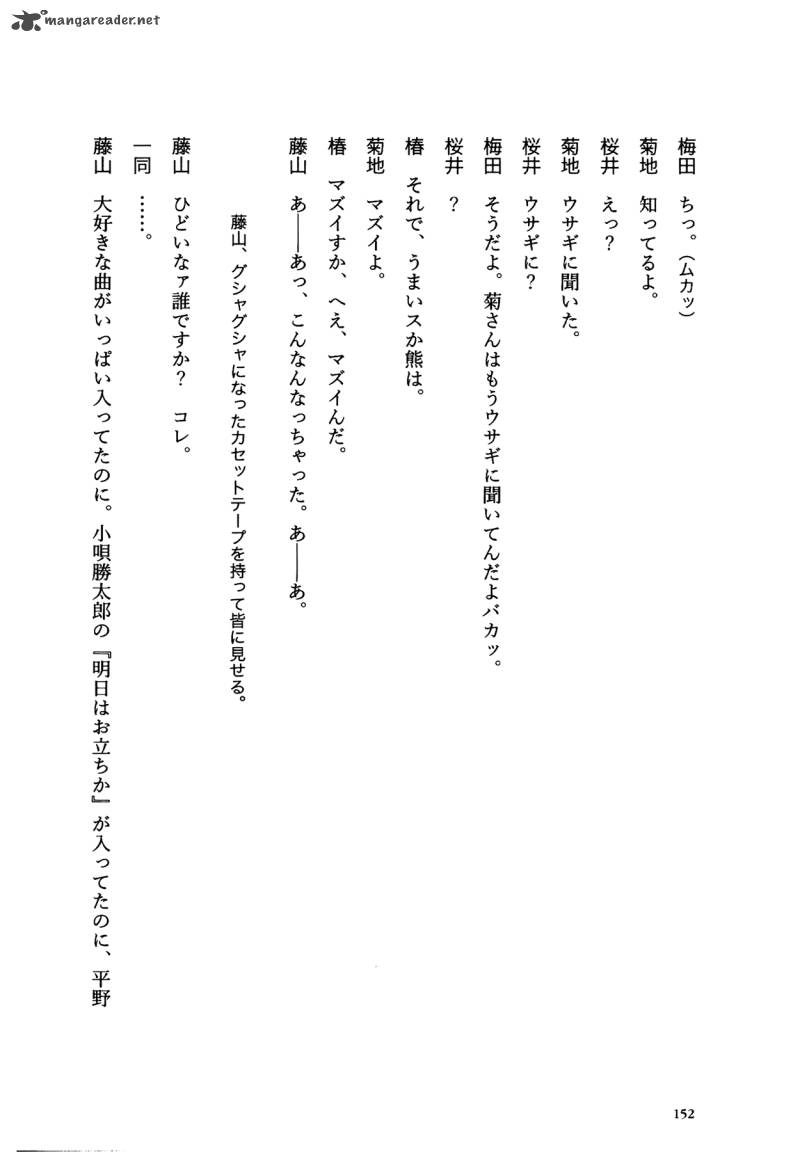 mangareader.net
梅田　ちっ。（ムカッ）
菊地　知ってるよ。
桜井　えっ？
菊地　ウサギに聞いた。
桜井　ウサギに？
梅田　そうだよ。菊さんはもうウサギに聞いてんだよバカッ。
桜井　？
椿　それで、うまいスか熊は。
菊地　マズイよ。
椿　マズイすか、へえ、マズイんだ。
藤山　あ――あっ、こんなんなっちゃった。あ――あ。
藤山、グシャグシャになったカセットテープを持って皆に見せる。
藤山　ひどいなァ誰ですか？　コレ。
一同　……。
藤山　大好きな曲がいっぱい入ってたのに。小唄勝太郎の『明日はお立ちか』が入ってたのに、平野
152